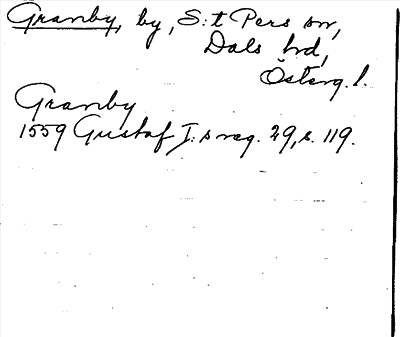 Granby, by, S:t Pers sn,
Dals hd,
Österg. l.
Granby
1559 Gustaf I:s reg. 29, s. 119.